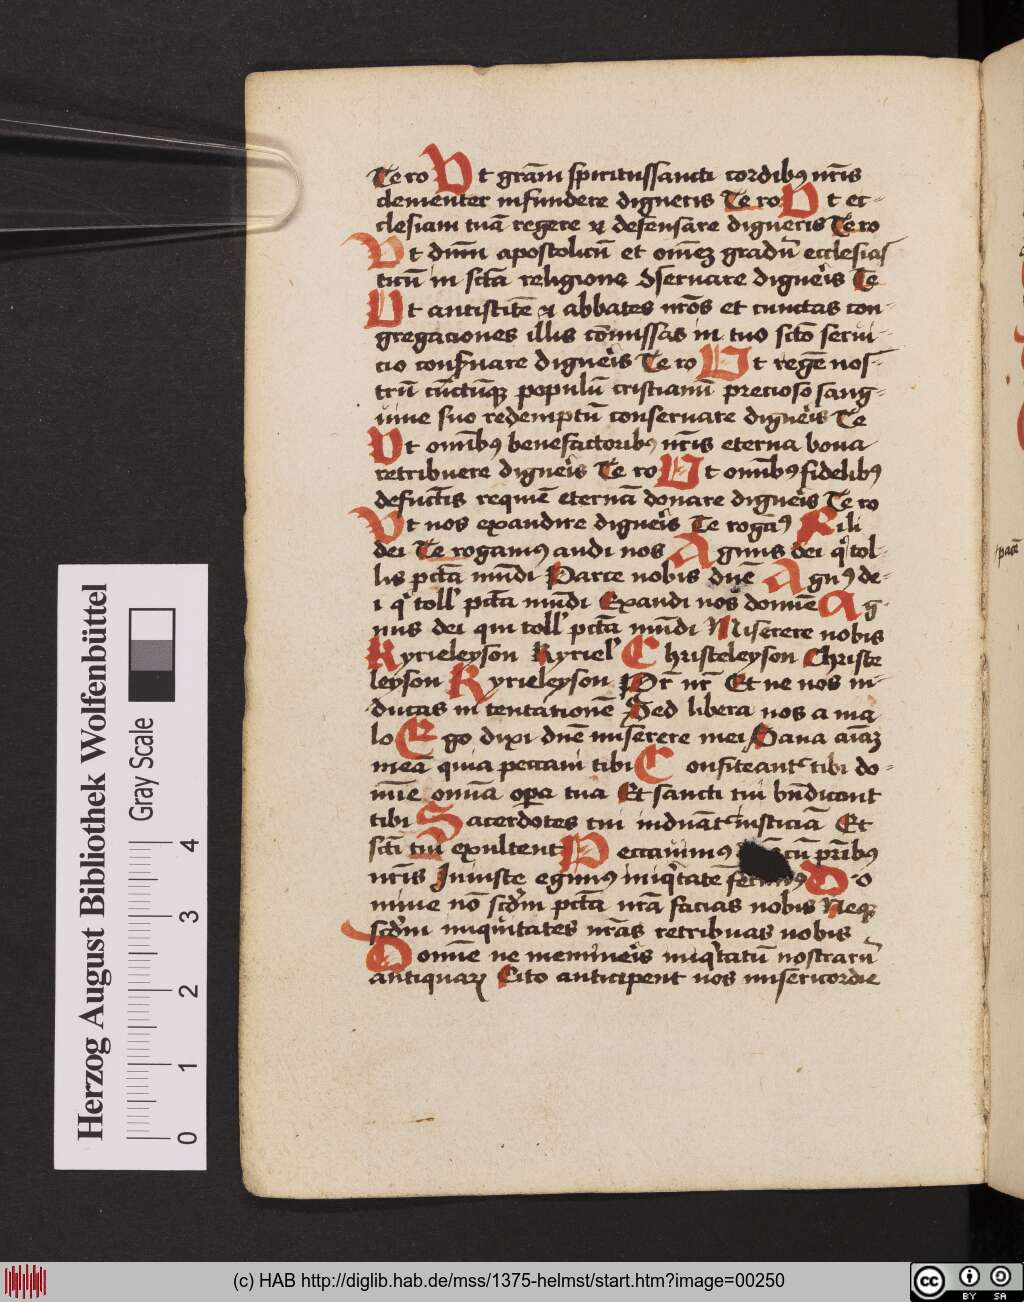 Te ro Ut grām spiritussancti cordibꝰ nr̄is
clementer infundere digneris Te ro Ut ec-
clesiam tuā regere ⁊ defensare digneris Te ro
Ut dnm̄ apostolicū et omēꝫ gradū ecclesias
ticū in sctā religione ꝯseruare digneris Te
Ut antistitē ⁊ abbates nr̄os et cunctas con-
gregaciones illis cōmissas in tuo sctō serui-
cio conseruare digneris Te ro Ut regē nos-
trū cūctūqꝫ populū cristianū precioso sang-
uine suo redemptū conseruare digneris Te
Ut omnibꝰ benefactoribꝰ nr̄is eterna bona
retribuere digneris Te ro Ut omnibꝰ fidelibꝰ
defunctis requiē eternā donare digneris Te ro
Ut nos exaudire digneris Te rogamꝰ Fili
dei Te rogamꝰ audi nos Agnus dei q tol-
lis pctā mūdi Parce nobis dnē Agnꝰ de-
i q toll' pctā mūdi Exaudi nos domīe Ag-
nus dei qui toll' pctā mūdi Miserere nobis
Kyrieleyson Kyriel' Christeleyson Christe
leyson Kyrieleyson Pr̄ nr̄ Et ne nos in-
ducas in tentationē Sed libera nos a ma
lo Ego dixi dnē miserere mei Sana aīaꝫ
meā quia peccaui tibi Confiteantr tibi do-
mīe omīa opa tua Et sancti tui bn̄dicant
tibi Sacerdotes tui induāt iusticiā Et
sctī tui exultent Peccauimꝰ cū pr̄ibꝰ
nr̄is Iniuste egimꝰ iniqtatē fecimꝰ Do
mine nō scdm pctā nrā facias nobis Neqꝫ
scdm iniquitates nr̄as retribuas nobis
Domīe ne memineris iniqtatū nostrarū
antiquaꝝ Cito anticipent nos misericordie
Herzog August Bibliothek Wolfenbüttel
Gray Scale
0 1 2 3 4
(c) HAB http://diglib.hab.de/mss/1375-helmst/start.htm?image=00250
cc BY SA